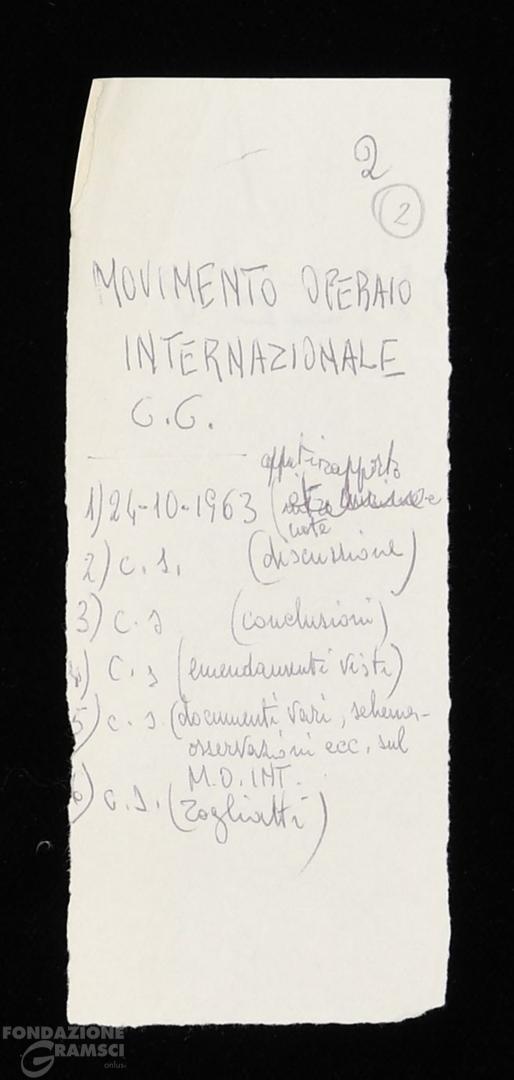 2
2
MOVIMENTO OPERAIO
INTERNAZIONALE
C.C.
appunti rapporto
1) 24-10-1963 (
note
2) c.s. (discussione)
3) c.s (conclusioni)
4) C.s (emendamenti visti)
5) c.s. (documenti vari, schema-
osservazioni ecc. sul
M.O. INT.
6) c.s. (Togliatti)
FONDAZIONE
GRAMSCI
onlus